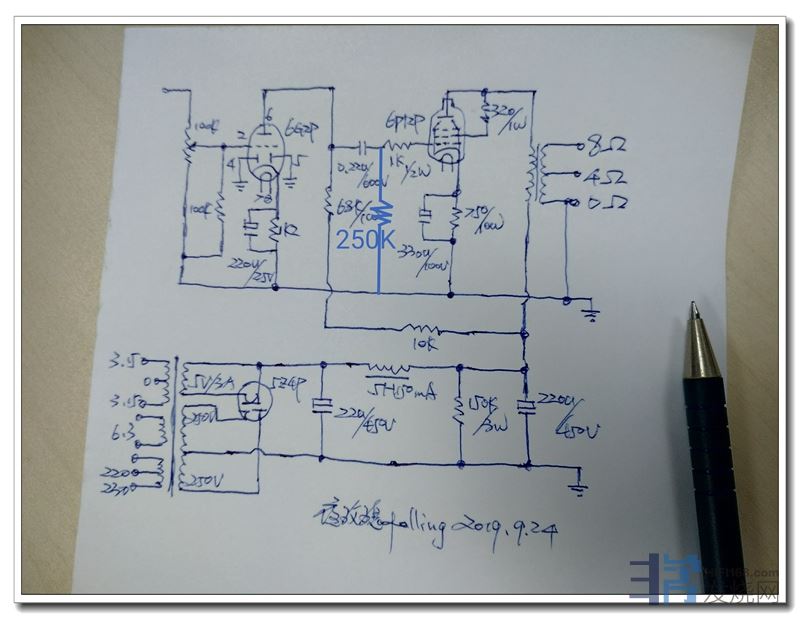 6
320/1W
100K
2
6G2P
6P12P
4
5
8Ω
0.22U/600V
1K
1/2W
4Ω
0Ω
100K
68K/1W
250K
1K
750/10W
220U/25V
330U/100V
10K
3.15
5V/3A
5Z4P
0
5H150mA
3.15
250V
220/450V
150K/3W
220U/450V
6.3
220
230
250V
falling 2019.9.24
HIFI168.com
发烧网